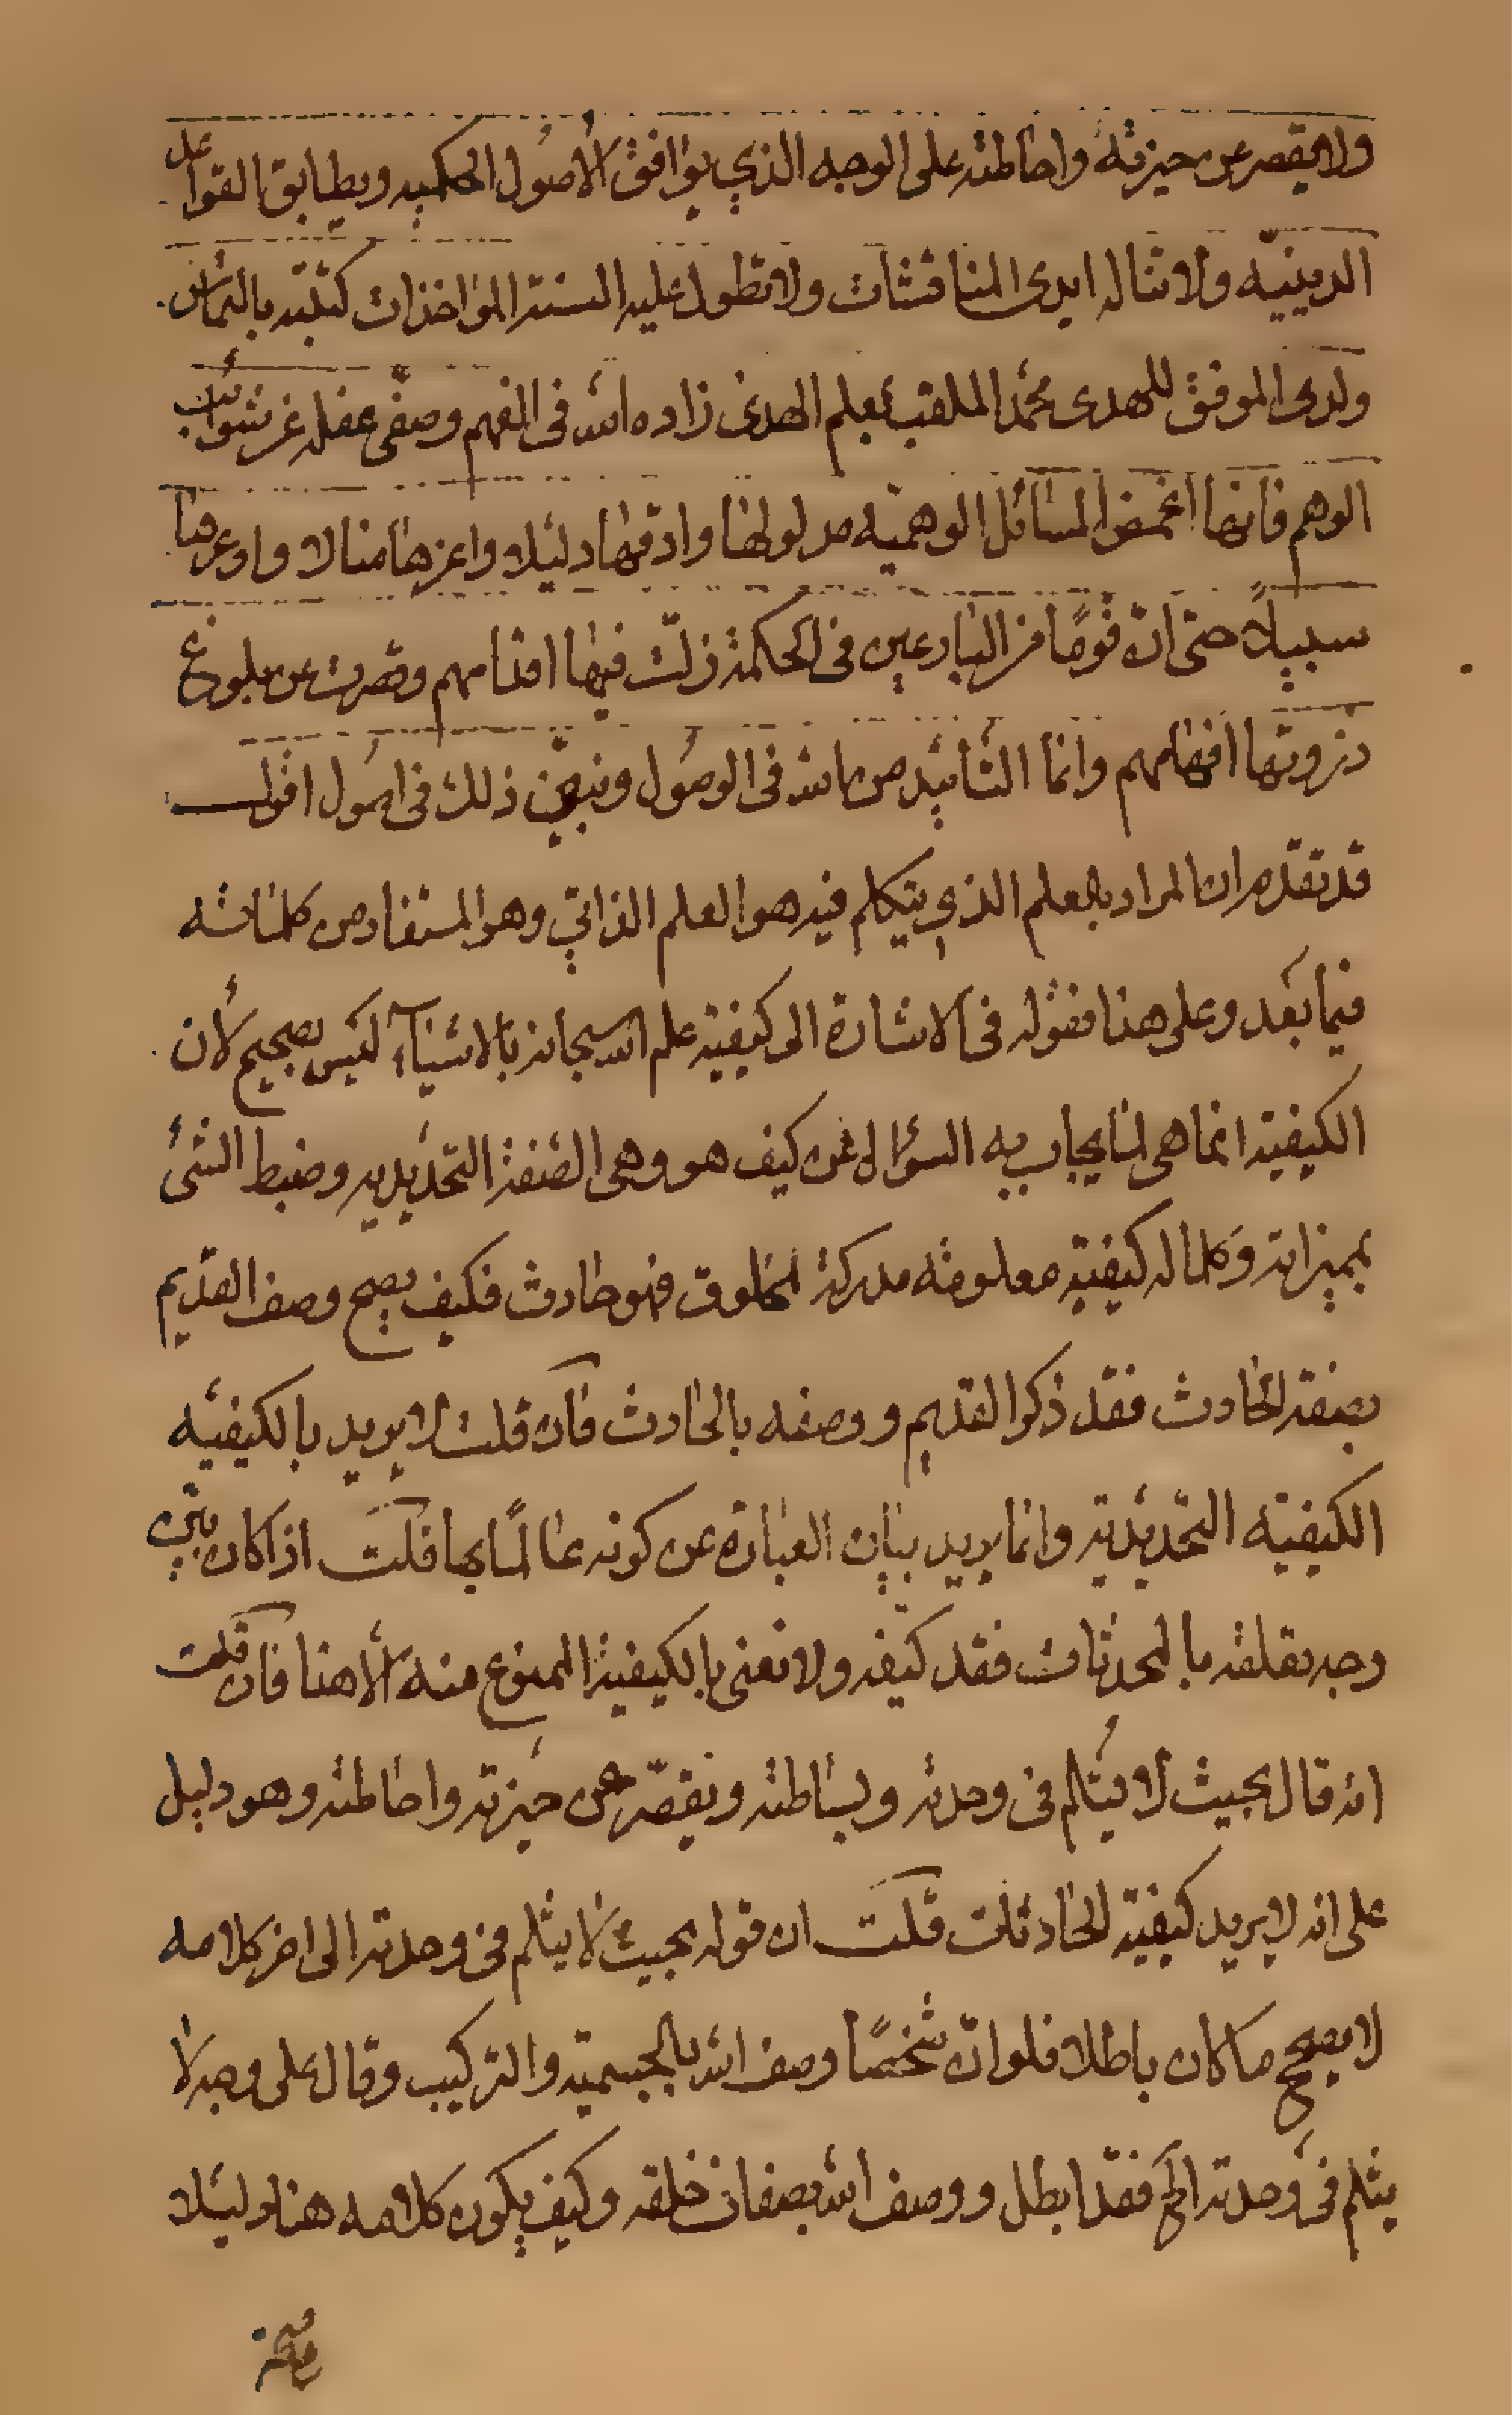 ولا يقصر عن حيزته واحاطته على الوجه الذي يوافق الأصول الحكميه ويطابق القواعل
الدينيّه ولا تناله ايدى المناقشات ولا تطول عليه السنة المؤاخذات كتبته بالتماس
ولدى الموفق للهدى محمّد الملقب بعلم الهدى زاده الله فى الفهم وصفّى عقله عن شوائب
الوهم فانها اغمض المسائل الوهميّه مدلولها وادقها دليلا واعزها منالا واوعرها
سبيلاً حتى انّ قومًا من البارعين فى الحكمة زلّت فيها اقدامهم وقصرت عن بلوغ
ذروتها افهامهم وانما التأييد من الله فى الوصول ونبيّن ذلك فى اصول اقول
قد تقدم ان المراد بالعلم الذي يتكلم فيه هو العلم الذاتي وهو المستفاد من كلماته
فيما بعد وعلى هذا فقوله فى الاشارة الى كيفية علم الله سبحانه بالاشياء ليس بصحيح لأن
الكيفية انما هى لما يجاب به السؤال عن كيف هو وهى الصفة التحديديه وضبط الشئ
بميزاته وكلما له كيفية معلومة مدركة لمخلوق فهو حادث فكيف يصح وصف القديم
بصفة الحادث فقد ذكر القديم ووصفه بالحادث فان قلت لا يريد بالكيفيه
الكيفيّه التحديدية وانما يريد بيان العبارة عن كونه عالمًا بها قلت اذا كان بيّن
وجه تعلقه بالمحدثات فقد كيّفه ولا نعنى بالكيفية الممنوع منه الا هذا فان قلت
انه قال بحيث لا يثلم فى وحدته وبساطته ويقصّر عن حيزته واحاطته وهو دليل
على انه لا يريد كيفية الحادثات قلت ان قوله بحيث لا يثلم فى وحدته الى اخر كلامه
لا يصحح ما كان باطلا فلو انّ شخصًا وصف الله بالجسمية والتركيب وقال على وجه لا
يثلم فى وحدته الخ فقد ابطل ووصف الله بصفات خلقه وكيف يكون كلامه هنا دليلا